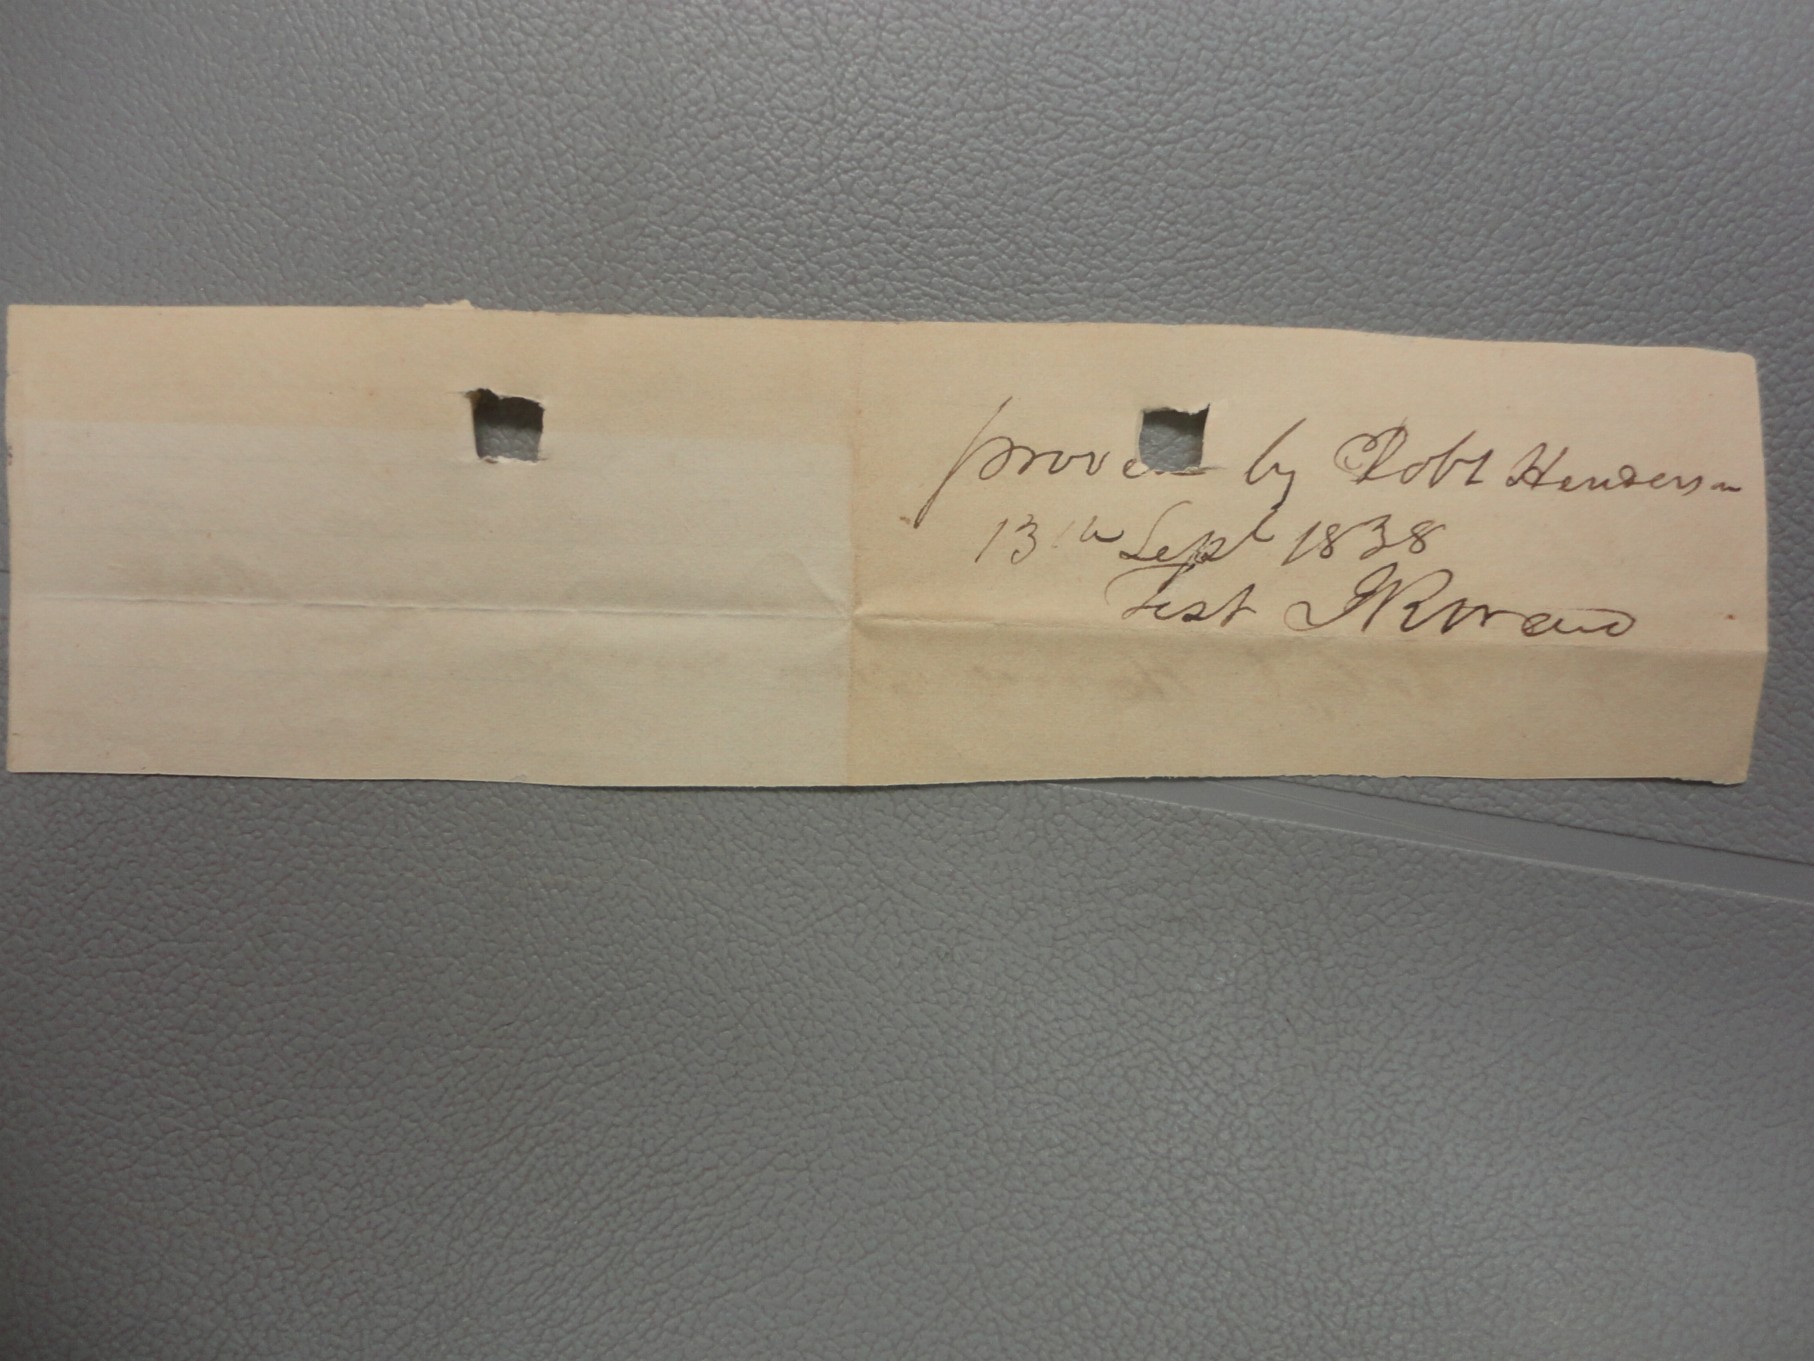 proven by Robt Henderson
13th Sept 1838
Test J R Ward